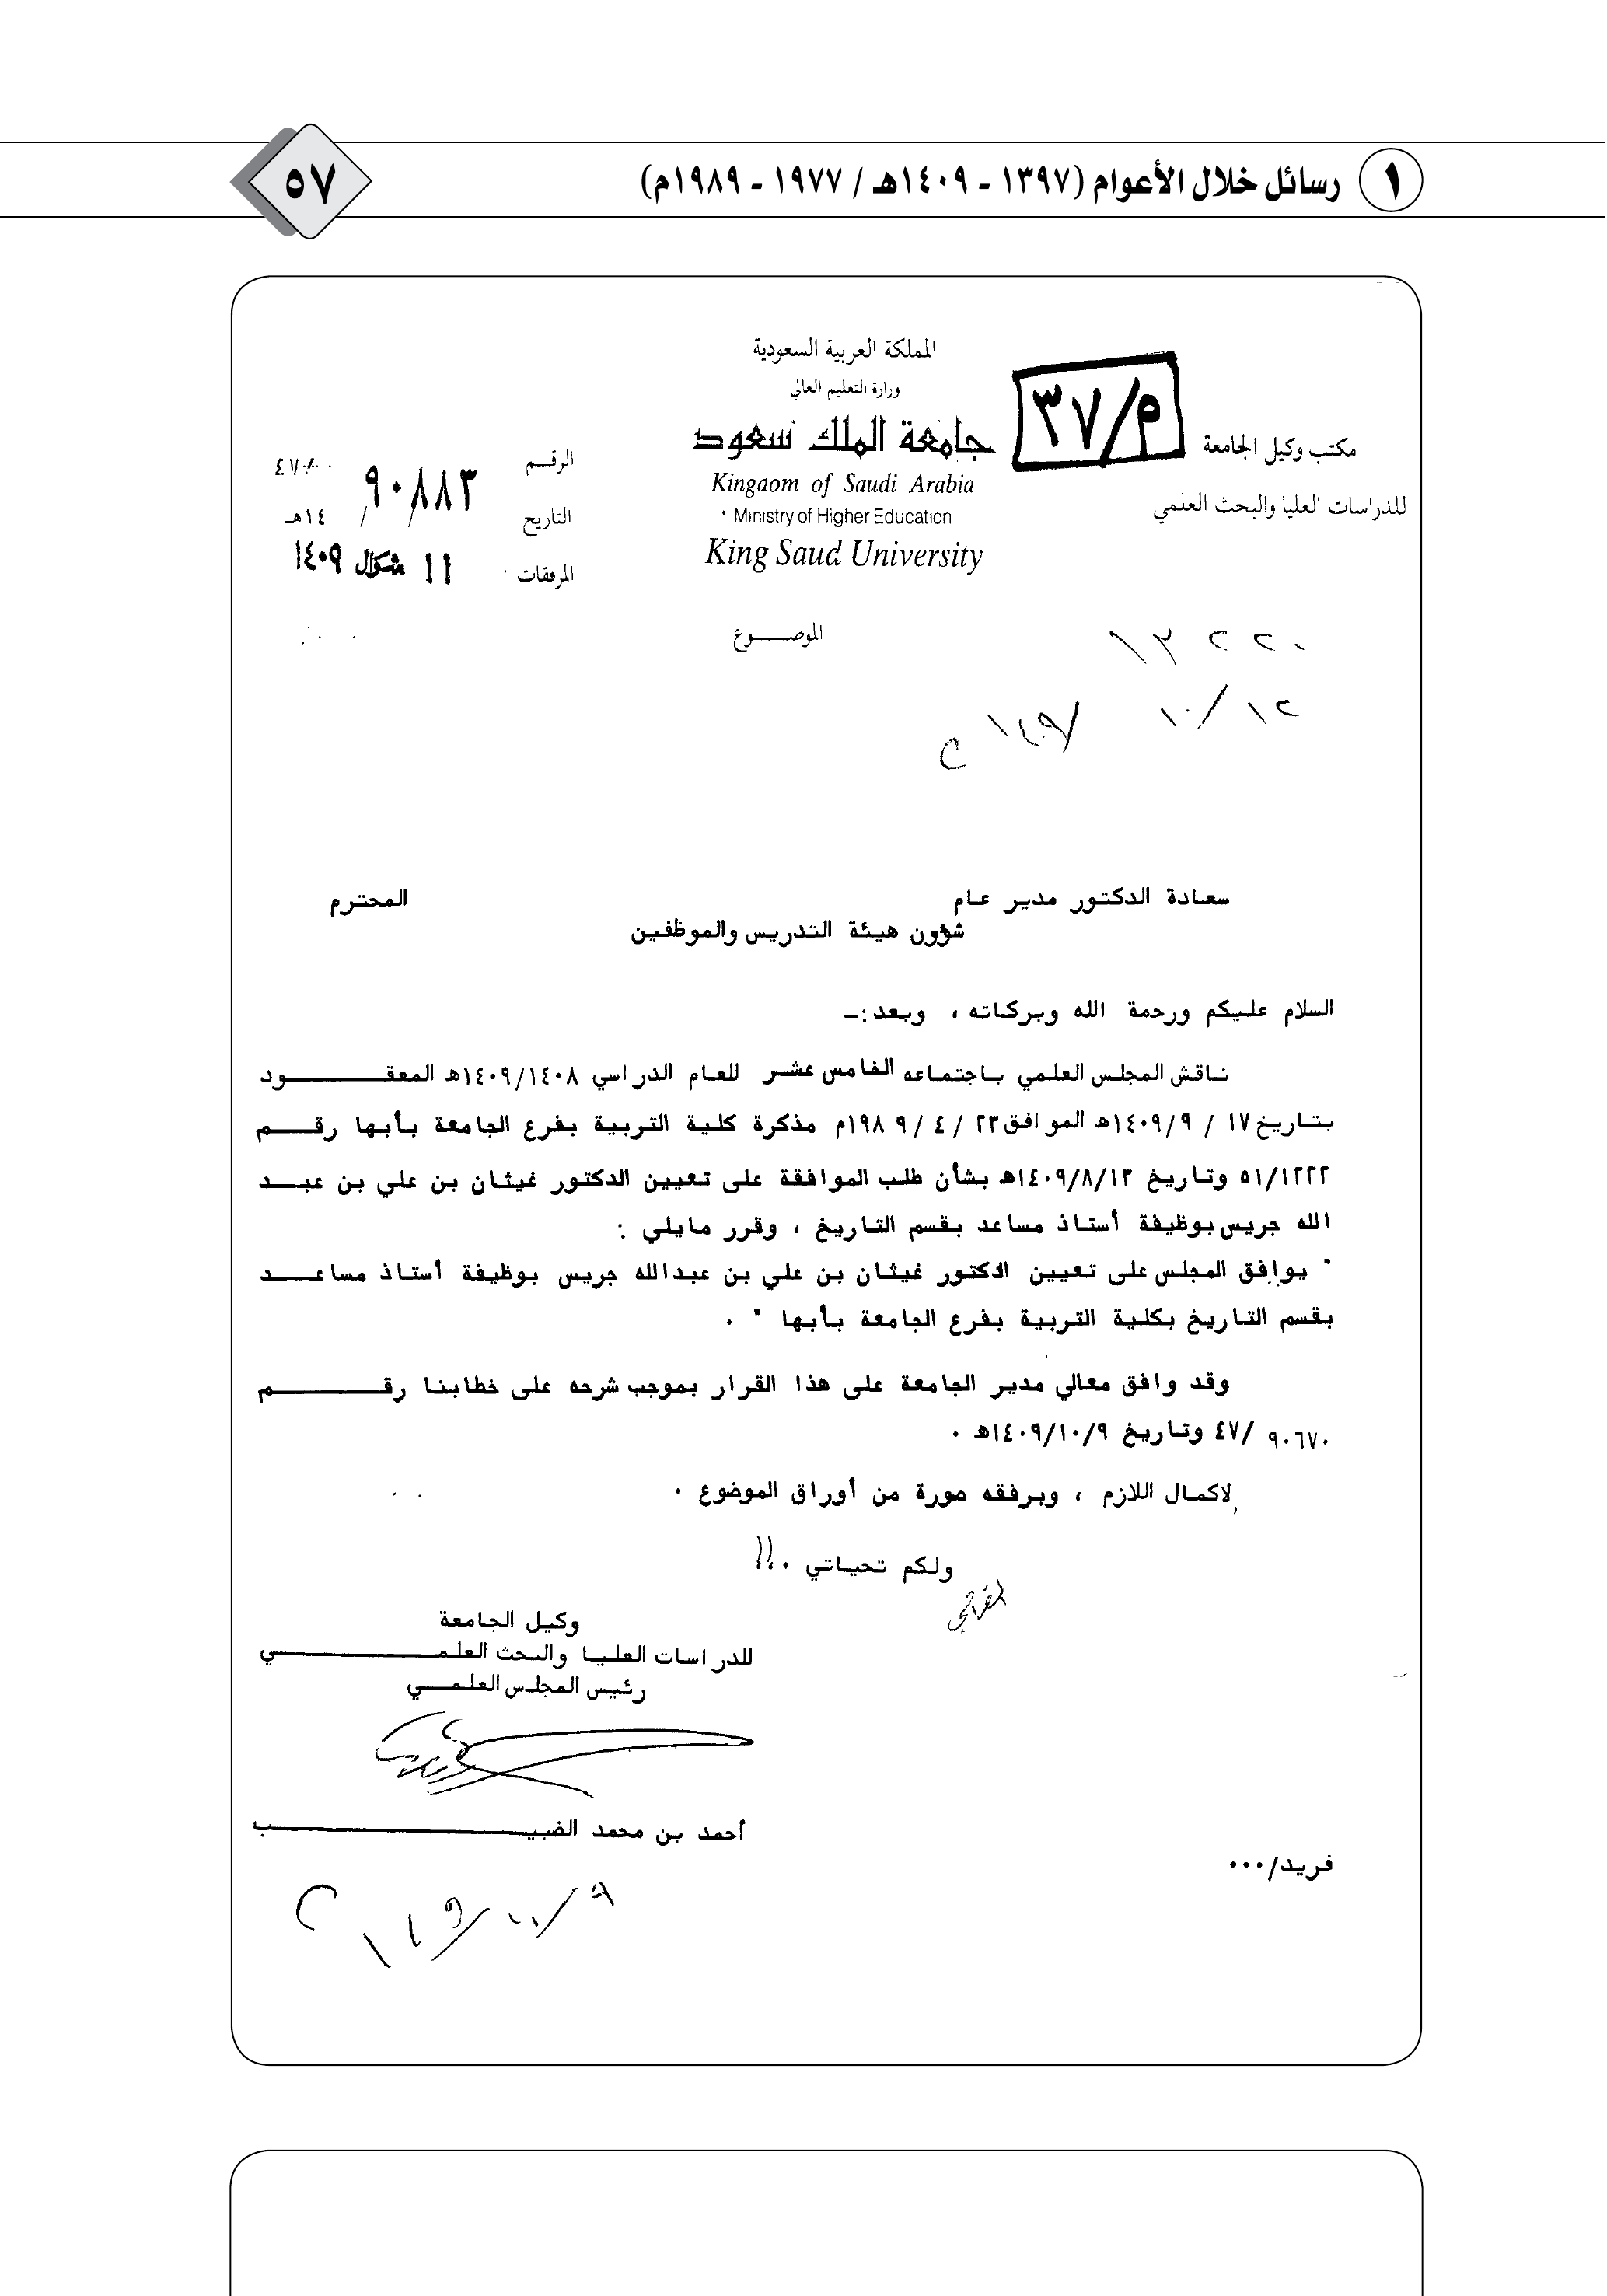 ١ رسائل خلال الأعوام (١٣٩٧ - ١٤٠٩هـ / ١٩٧٧ - ١٩٨٩م)
٥٧
المملكة العربية السعودية
وزارة التعليم العالي
جامعة الملك سعود
Kingaom of Saudi Arabia
Ministry of Higher Education
King Saud University
م/٣٧
مكتب وكيل الجامعة
للدراسات العليا والبحث العلمي
الرقم ٩٠٨٨٣ ٤٧
التاريخ / / ١٤هـ
١١ شوال ١٤٠٩
المرفقات
الموضـــوع
١٣٢٢٠
١٢/١٠/١٤٠٩
سعادة الدكتور مدير عام المحترم
شؤون هيئة التدريس والموظفين
السلام عليكم ورحمة الله وبركاته ، وبعد :-
ناقش المجلس العلمي باجتماعه الخامس عشر للعام الدراسي ١٤٠٩/١٤٠٨هـ المعقــــود
بتاريخ ١٧ / ١٤٠٩/٩هـ الموافق ٢٣ / ٤ / ١٩٨٩م مذكرة كلية التربية بفرع الجامعة بأبها رقــم
٥١/١٢٢٢ وتاريخ ١٤٠٩/٨/١٣هـ بشأن طلب الموافقة على تعيين الدكتور غيثان بن علي بن عبــد
الله جريس بوظيفة أستاذ مساعد بقسم التاريخ ، وقرر مايلي :
" يوافق المجلس على تعيين الدكتور غيثان بن علي بن عبدالله جريس بوظيفة أستاذ مساعــد
بقسم التاريخ بكلية التربية بفرع الجامعة بأبها " .
وقد وافق معالي مدير الجامعة على هذا القرار بموجب شرحه على خطابنا رقـــــم
٩٠٦٧٠ /٤٧ وتاريخ ١٤٠٩/١٠/٩هـ .
لاكمال اللازم ، وبرفقه صورة من أوراق الموضوع .
ولكم تحياتي .!!
وكيل الجامعة
للدراسات العليا والبحث العلمـــــي
رئيس المجلس العلمــي
أحمد بن محمد الضبيـــــب
فريد/٠٠٠